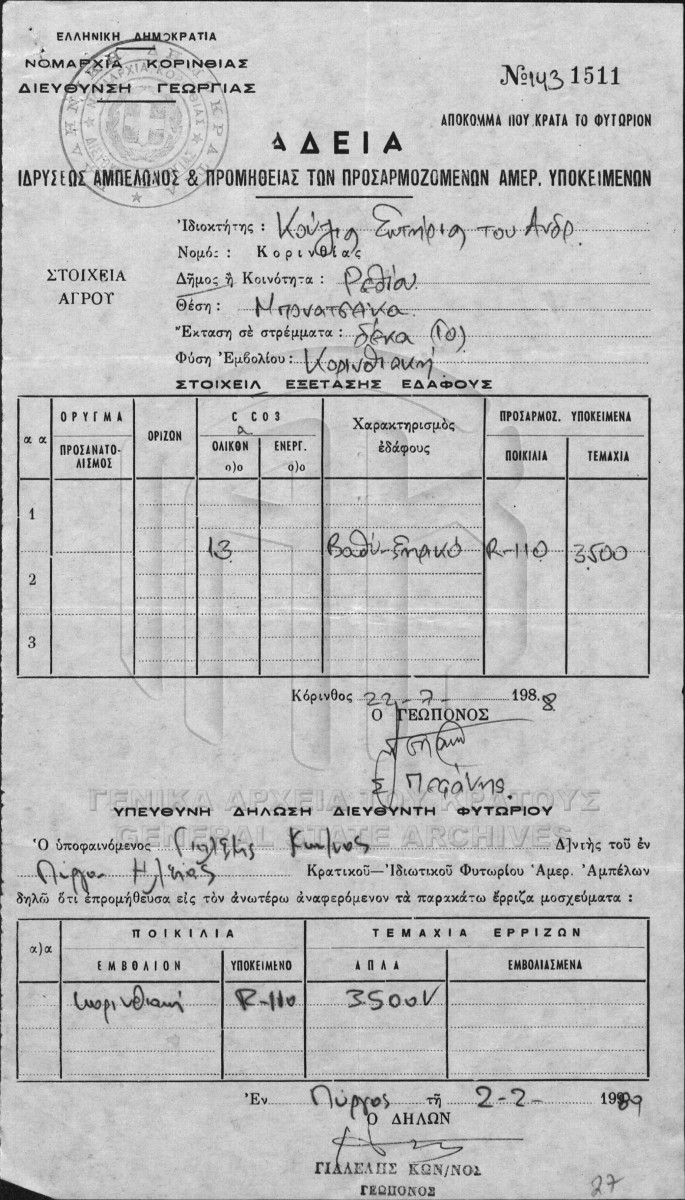 ΕΛΛΗΝΙΚΗ ΔΗΜΟΚΡΑΤΙΑ
ΝΟΜΑΡΧΙΑ ΚΟΡΙΝΘΙΑΣ
ΔΙΕΥΘΥΝΣΗ ΓΕΩΡΓΙΑΣ
№ 143 1511
ΑΠΟΚΟΜΜΑ ΠΟΥ ΚΡΑΤΑ ΤΟ ΦΥΤΩΡΙΟΝ
ΑΔΕΙΑ
ΙΔΡΥΣΕΩΣ ΑΜΠΕΛΩΝΟΣ & ΠΡΟΜΗΘΕΙΑΣ ΤΩΝ ΠΡΟΣΑΡΜΟΖΟΜΕΝΩΝ ΑΜΕΡ. ΥΠΟΚΕΙΜΕΝΩΝ
ΣΤΟΙΧΕΙΑ ΑΓΡΟΥ
Ἰδιοκτήτης : Κούλια Σωτήρια του Ανδρ.
Νομός : Κορινθίας
Δῆμος ἤ Κοινότητα : Ρεθίου
Θέση : Μπονατσαίκα
Ἔκταση σὲ στρέμματα : δέκα (10)
Φύση Ἐμβολίου : Κορινθιακή
ΣΤΟΙΧΕΙΑ ΕΞΕΤΑΣΗΣ ΕΔΑΦΟΥΣ
α α ΟΡΥΓΜΑ ΠΡΟΣΑΝΑΤΟ-ΛΙΣΜΟΣ ΟΡΙΖΩΝ C a CO3 ΟΛΙΚΩΝ ο)ο ΕΝΕΡΓ. ο)ο Χαρακτηρισμὸς ἐδάφους ΠΡΟΣΑΡΜΟΖ. ΥΠΟΚΕΙΜΕΝΑ ΠΟΙΚΙΛΙΑ ΤΕΜΑΧΙΑ
1
13 Βαθύ-ξηρικό R-110 3.500
2
3
Κόρινθος 22-7- 1988
Ο ΓΕΩΠΟΝΟΣ
ΓΕΝΙΚΑ ΑΡΧΕΙΑ ΤΟΥ ΚΡΑΤΟΥΣ
GENERAL STATE ARCHIVES
ΥΠΕΥΘΥΝΗ ΔΗΛΩΣΗ ΔΙΕΥΘΥΝΤΗ ΦΥΤΩΡΙΟΥ
Ὁ ὑποφαινόμενος Γιαλελής Κων/νος Δ)ντὴς τοῦ ἐν
Πύργου Ηλείας Κρατικοῦ—Ἰδιωτικοῦ Φυτωρίου Ἀμερ. Ἀμπέλων
δηλῶ ὅτι ἐπρομήθευσα εἰς τὸν ἀνωτέρω ἀναφερόμενον τὰ παρακάτω ἔρριζα μοσχεύματα :
α)α ΠΟΙΚΙΛΙΑ ΤΕΜΑΧΙΑ ΕΡΡΙΖΩΝ
ΕΜΒΟΛΙΟΝ ΥΠΟΚΕΙΜΕΝΟ ΑΠΛΑ ΕΜΒΟΛΙΑΣΜΕΝΑ
κορινθιακή R-110 3.500
Ἐν Πύργος τῇ 2-2- 1989
Ο ΔΗΛΩΝ
ΓΙΑΛΕΛΗΣ ΚΩΝ/ΝΟΣ
ΓΕΩΠΟΝΟΣ
27